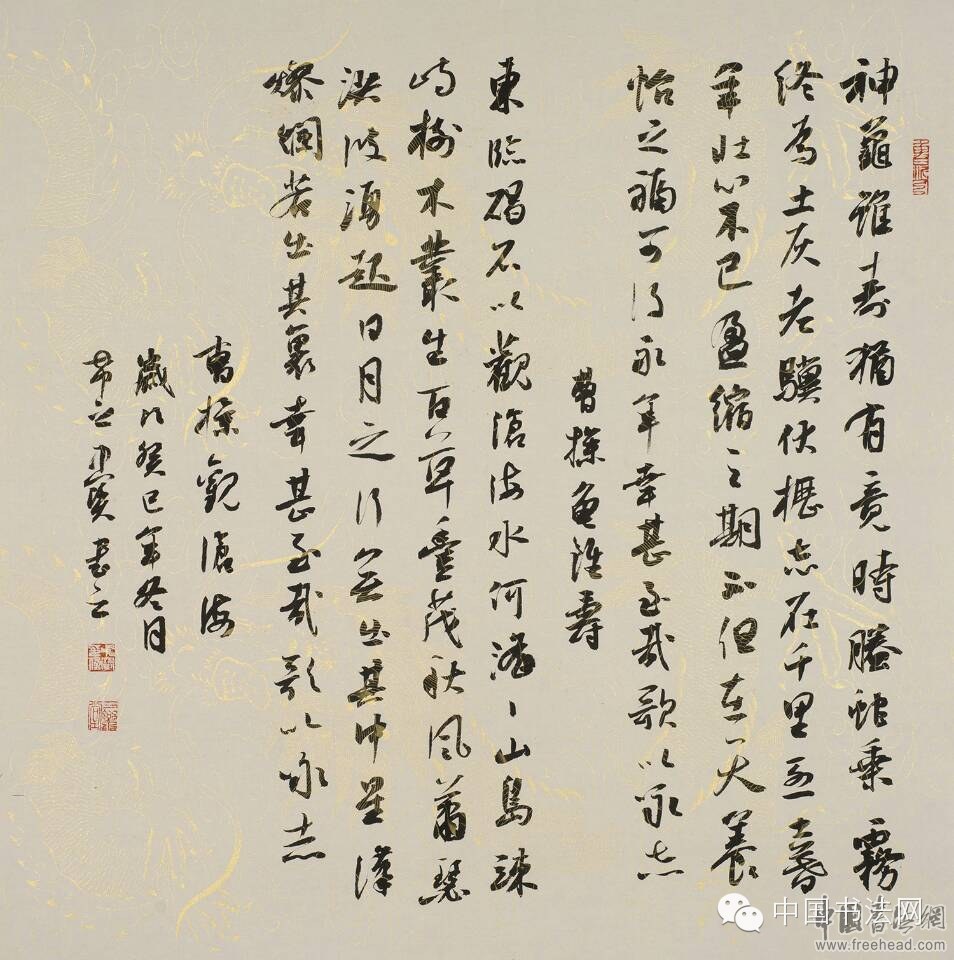 神龜雖寿猶有竟時騰蛇乘霧
终為土灰老驥伏櫪志在千里烈士暮
年壮心不已盈缩之期不但在天養
怡之福可得永年幸甚至哉歌以咏志
曹操龟雖壽
東臨碣石以觀滄海水何澹々山島竦
峙樹木叢生百草豐茂秋風蕭瑟
洪波湧起日月之行若出其中星漢
燦爛若出其裏幸甚至哉歌以咏志
曹操觀滄海
歲次癸巳年冬月
中国书法网
中國書法網
www.freehead.com